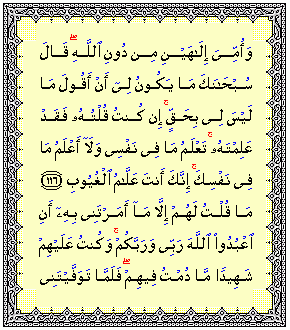 وَأُمِّىَ إِلَٰهَيْنِ مِن دُونِ ٱللَّهِ ۖ قَالَ
سُبْحَٰنَكَ مَا يَكُونُ لِىٓ أَنْ أَقُولَ مَا
لَيْسَ لِى بِحَقٍّ ۚ إِن كُنتُ قُلْتُهُۥ فَقَدْ
عَلِمْتَهُۥ ۚ تَعْلَمُ مَا فِى نَفْسِى وَلَآ أَعْلَمُ مَا
فِى نَفْسِكَ ۚ إِنَّكَ أَنتَ عَلَّٰمُ ٱلْغُيُوبِ ﴿١١٦﴾
مَا قُلْتُ لَهُمْ إِلَّا مَآ أَمَرْتَنِى بِهِۦٓ أَنِ
ٱعْبُدُوا۟ ٱللَّهَ رَبِّى وَرَبَّكُمْ ۚ وَكُنتُ عَلَيْهِمْ
شَهِيدًا مَّا دُمْتُ فِيهِمْ ۖ فَلَمَّا تَوَفَّيْتَنِى